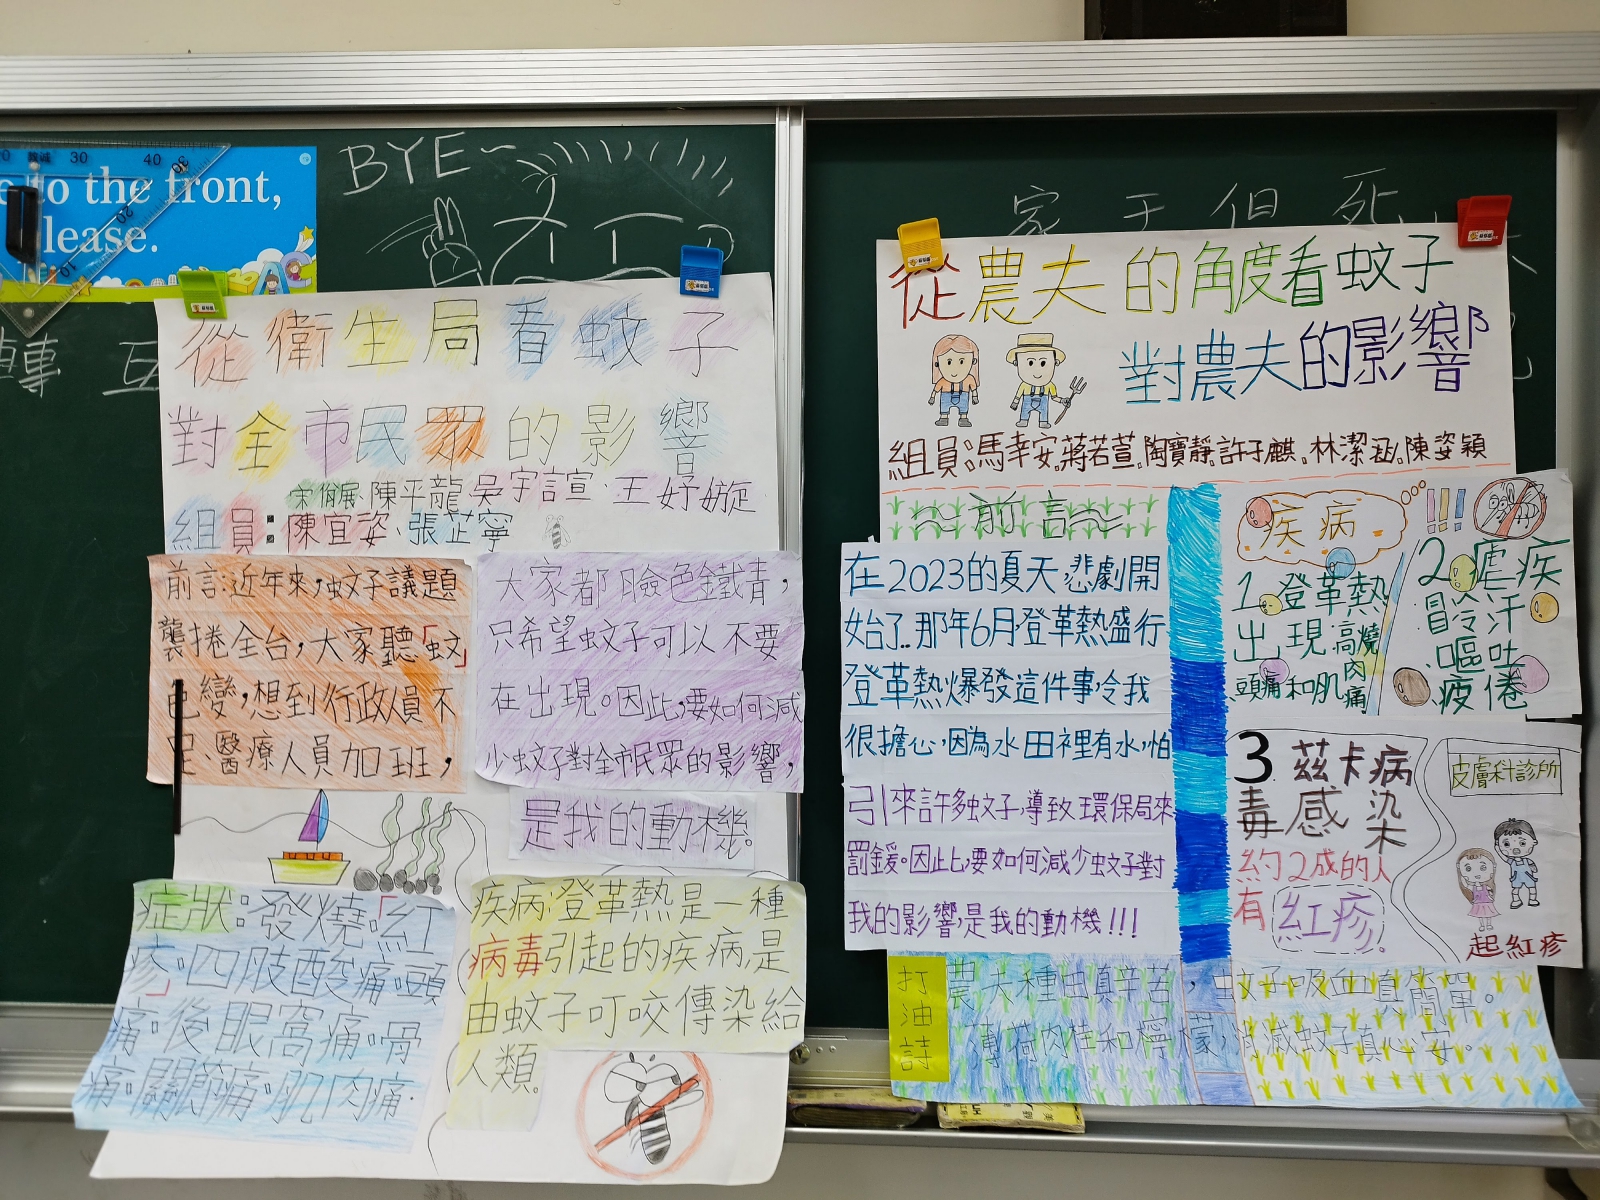 BYE~
to the front,
lease.
轉 互
家 于 但 死
從衛生局看蚊子
對全市民眾的影響
陳平龍、吳宇言宣、王妤嫙
組員:陳宜姿、張芷寧
前言:近年來,蚊子議題
襲捲全台,大家聽「蚊」
色變,想到行政人員不
足、醫療人員加班,
大家都臉色鐵青,
只希望蚊子可以不要
在出現。因此,要如何減
少蚊子對全市民眾的影響,
是我的動機。
症狀:發燒、「紅
疹」、四肢酸痛、頭
痛、後眼窩痛、骨
痛、關節痛、肌肉痛.
疾病:登革熱是一種
病毒引起的疾病,是
由蚊子叮咬傳染給
人類。
從農夫的角度看蚊子
對農夫的影響
組員:馮幸安。蔣若萱。陶寶靜。許子麒。林潔涵。陳姿穎
~前言~
在2023的夏天悲劇開
始了..那年6月,登革熱盛行
登革熱爆發這件事,令我
很擔心,因為水田裡有水,怕
引來許多蚊子,導致環保局來
罰錢。因此,要如何減少蚊子對
我的影響,是我的動機!!!
疾病
!!!
1.登革熱
出現:高燒
頭痛和肌肉痛
2.瘧疾
冒冷汗
嘔吐
疲倦
3.茲卡病
毒感染
約2成的人
有紅疹!
皮膚科診所
起紅疹
打油詩
農夫種田真辛苦,蚊子吸血真簡單。
薄荷肉桂和檸檬,消滅蚊子真心安。